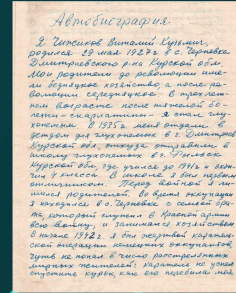 Автобиография.
Я Чижиков Виталий Кузьмич,
родился 29 мая 1927г в с. Черневка
Дмитриевского р-на Курской обл.
Мои родители до революции име-
ли бедняцкое хозяйство, а после ре-
волюции середняцкое. В трехлет-
нем возрасте после тяжелой бо-
лезни - скарлатины - я стал глу-
хонемым. В 1935г меня отдали в
детдом для глухонемых в г. Дмитриев
Курской обл, откуда отправили в
школу глухонемых в г. Рыльск
Курской обл, где учился до 1941г и окон-
чил 4 класса. В школе я был первым
отличником. Перед войной я ли-
шился родителей. Во время оккупации
я находился в с. Черневка с семьей бра-
та, который служил в Красной армии
всю войну, и занимался хозяйством
в начале 1942г. я был жертвой каратель-
ной операции немецких оккупантов,
чуть не попал в число расстрелянных
мирных жителей: каратель не успел
спустить курок, как его перебила моя